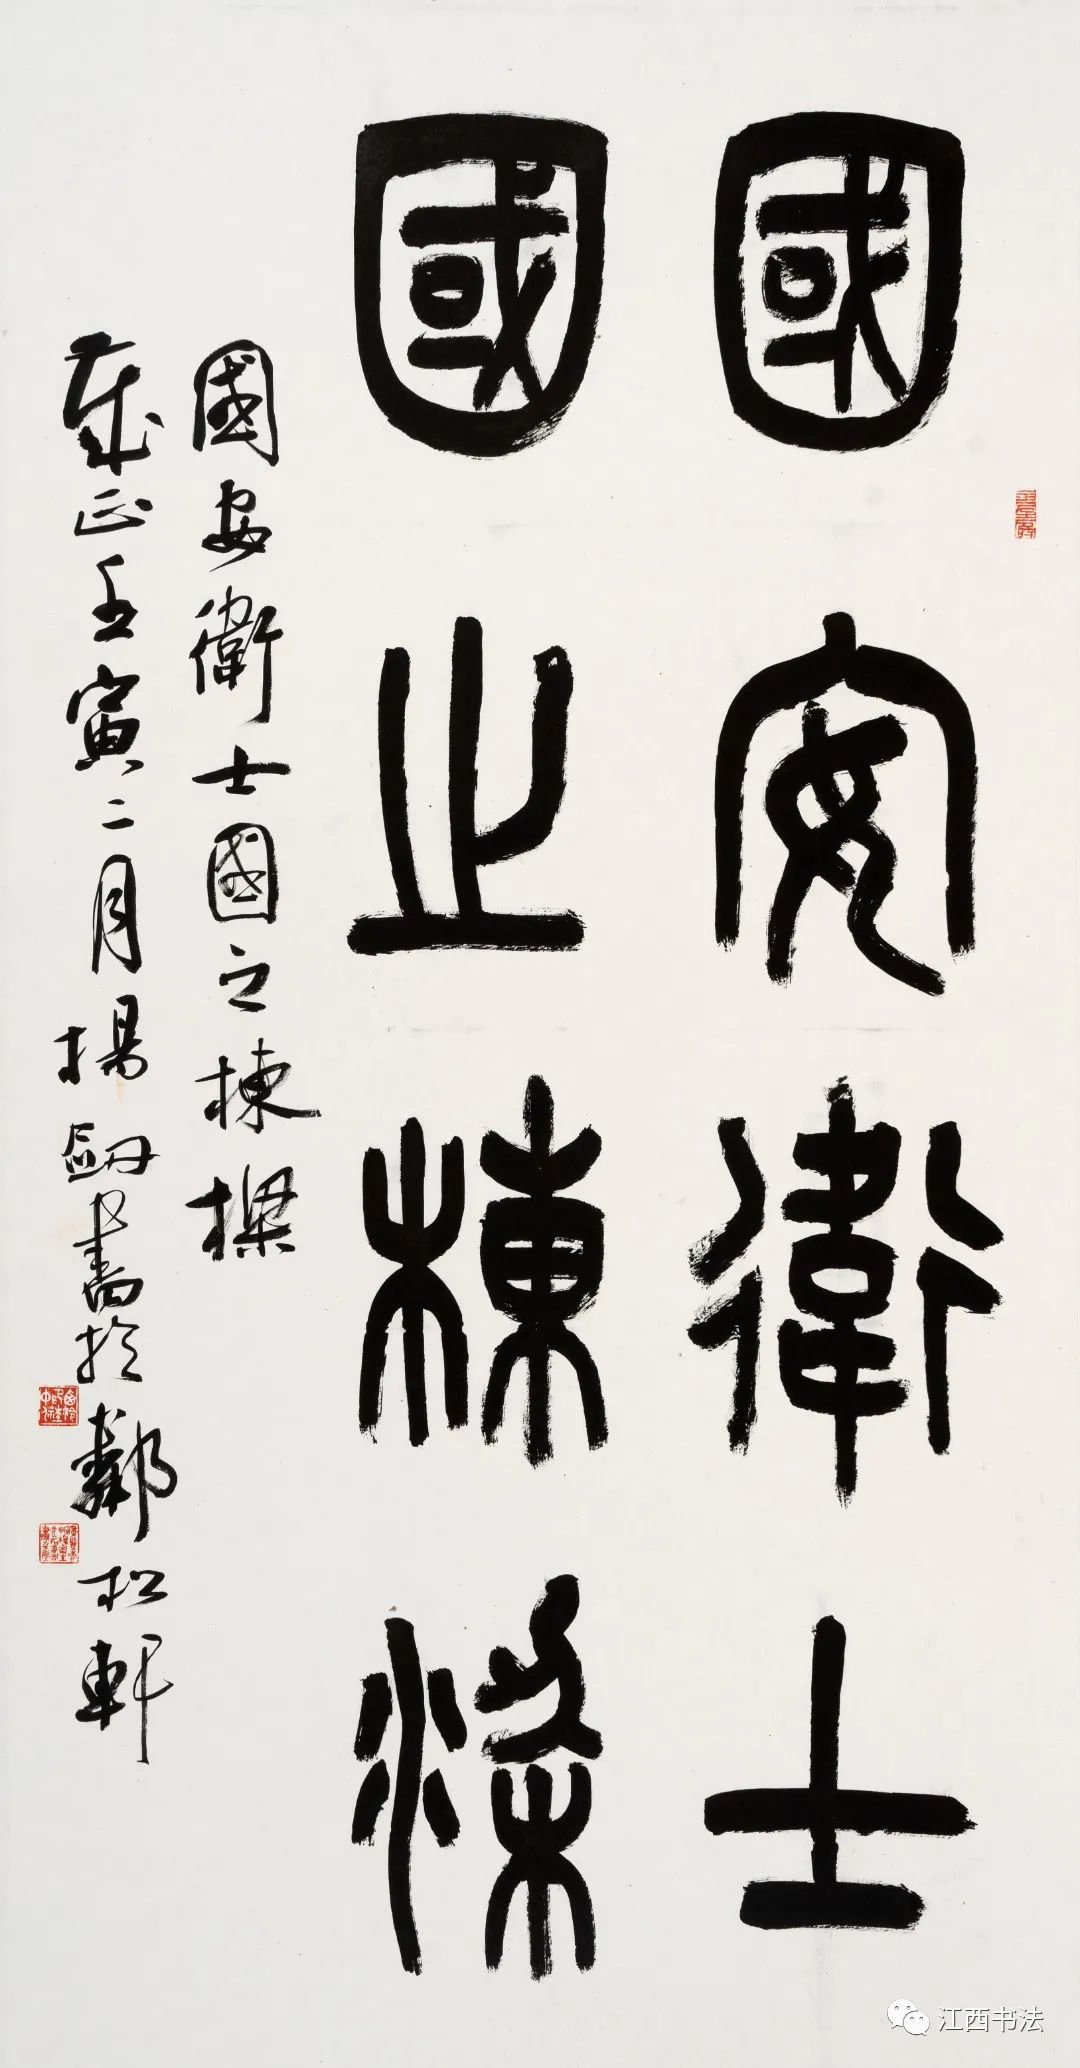 國安衛士
國之棟梁
國安衛士國之棟樑
歲在壬寅二月楊劍書於鄰松軒
江西书法